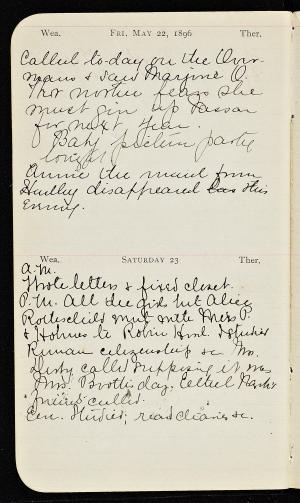 Wea. FRI, MAY 22, 1896 Ther.
Called to-day on the Over-
mans & saw Marjorie O.
mother fears she
must give up Vassar
for next year.
Baby picture party
tonight
Annie the maid from
disappeared this
Evening.
Wea. SATURDAY 23 Ther.
A.M.
Wrote letters & fixed closet.
P.M. All the girls but Alice
Rothschild went with Miss P.
& Holmes to Robin Hood. I studied
Roman citizenship &c. Mrs.
called supposing it was
Mrs. day.
called.
Eve. Studied, read &c.